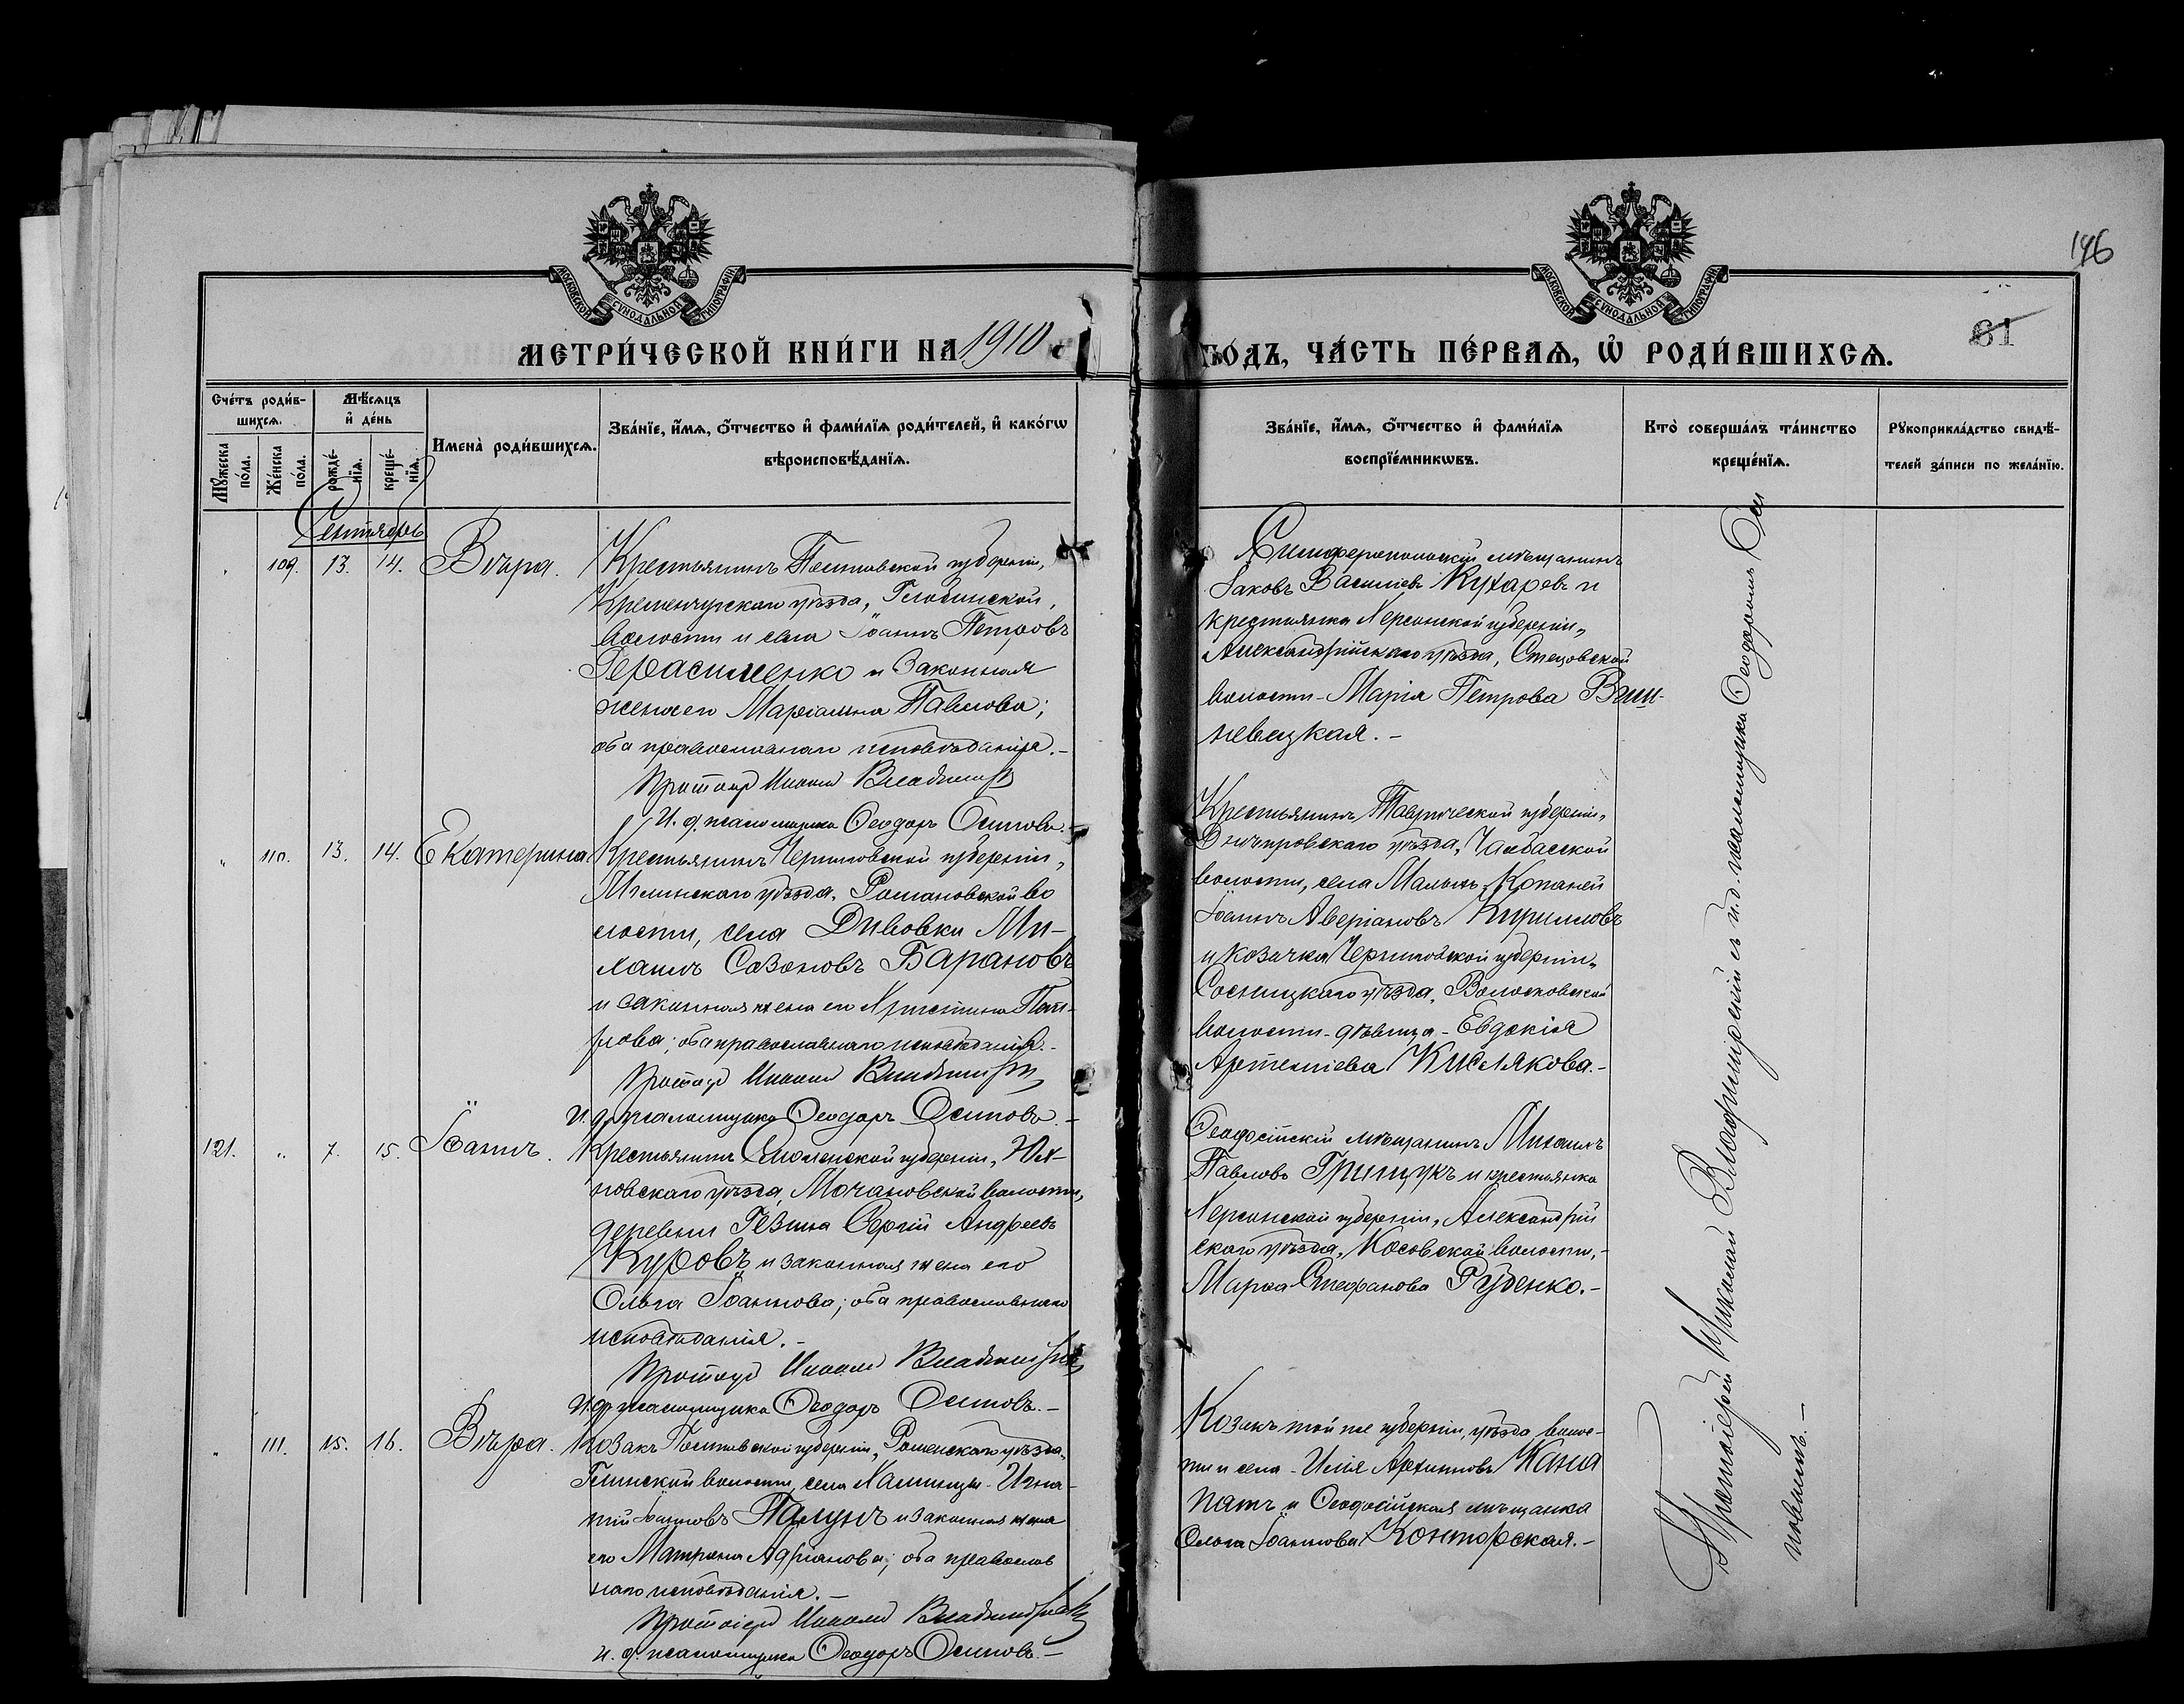 146
61
МОСКОВСКОЙ СѴНОДАЛЬНОЙ ТИПОГРАФІИ
МОСКОВСКОЙ СѴНОДАЛЬНОЙ ТИПОГРАФІИ
МЕТРИ́ЧЕСКОЙ КНИ́ГИ НА 1910 ГО́ДЪ, ЧА́СТЬ ПЕ́РВАЯ, Ѡ РОДИ́ВШИХСЯ.
Сче́тъ роди́вшихся.
Му́жеска по́ла.
Же́нска по́ла.
Мѣ́сяцъ и де́нь
рожде́нія.
креще́нія.
Имена̀ роди́вшихся.
Зва́ніе, и́мя, о́тчество и фами́лія роди́телей, и како́гѡ
вѣроисповѣ́данія.
Зва́ніе, и́мя, о́тчество и фами́лія
воспріе́мникѡвъ.
Кто̀ соверша́лъ та́инство
креще́нія.
Рꙋкоприкла́дство свидѣ́-
телей за́писи по жела́нію.
Сентябрь
109. 13. 14. Вѣра.
Крестьянинъ Полтавской губерніи,
Кременчугскаго уѣзда, Глобинской,
волости и села Іоаннъ Петровъ
Герасименко и законная
жена его Маріамна Павлова;
оба православнаго исповѣданія.-
И. д. псаломщика Ѳеодоръ Осиповъ.-
Симферопольскій мѣщанинъ
Іаковъ Василіевъ Кухаревъ и
крестьянка Херсонской губерніи,
Александрійскаго уѣзда, Стецовской
волости - Марія Петрова Виш-
невецкая.-
110. 13. 14. Екатерина
Крестьянинъ Черниговской губерніи,
Мглинскаго уѣзда, Романовской во
лости, села Дивовки Ми-
хаилъ Сазоновъ Барановъ
и законная жена его Христина
оба православнаго исповѣданія.-
И. д. псаломщика Ѳеодоръ Осиповъ.-
Крестьянинъ Таврической губерніи,
Днѣпровскаго уѣзда, Чалбасской
волости, села Малыхъ-Копаней
Іоаннъ Аверіановъ Кирилловъ
и козачка Черниговской губерніи,
Сосницкаго уѣзда, Волосковской
волости - дѣвица - Евдокія
Артеміева Кислякова.-
121. " 7. 15. Іоаннъ.
Крестьянинъ Смоленской губерніи, Юх-
новскаго уѣзда, Мочановской волости,
деревни Сергій Андреевъ
Куровъ и законная жена его
Ольга Іоаннова; оба православнаго
исповѣданія.-
И. д. псаломщика Ѳеодоръ Осиповъ.-
Ѳеодосійскій мѣщанинъ Михаилъ
Павловъ Грищукъ и крестьянка
Херсонской губерніи, Александрій
скаго уѣзда, Косовской волости,-
Марѳа Стефанова Руденко.-
111. 15. 16. Вѣра.
Козакъ Полтавской губерніи, Роменскаго уѣзда,
Глинской волости, села Игна-
тій Іоанновъ Палунъ и законная жена
его Матрона Адріанова; оба православ
наго исповѣданія.-
И. д. псаломщика Ѳеодоръ Осиповъ.-
Козакъ той же губерніи, уѣзда волос-
ти и села - Илія Архиповъ
и Ѳеодосійская мѣщанка
Ольга Іоаннова Конторская.-
Протоіерей Николай Владимірскій съ и. д. псаломщика Ѳеодоромъ Оси
повымъ.-